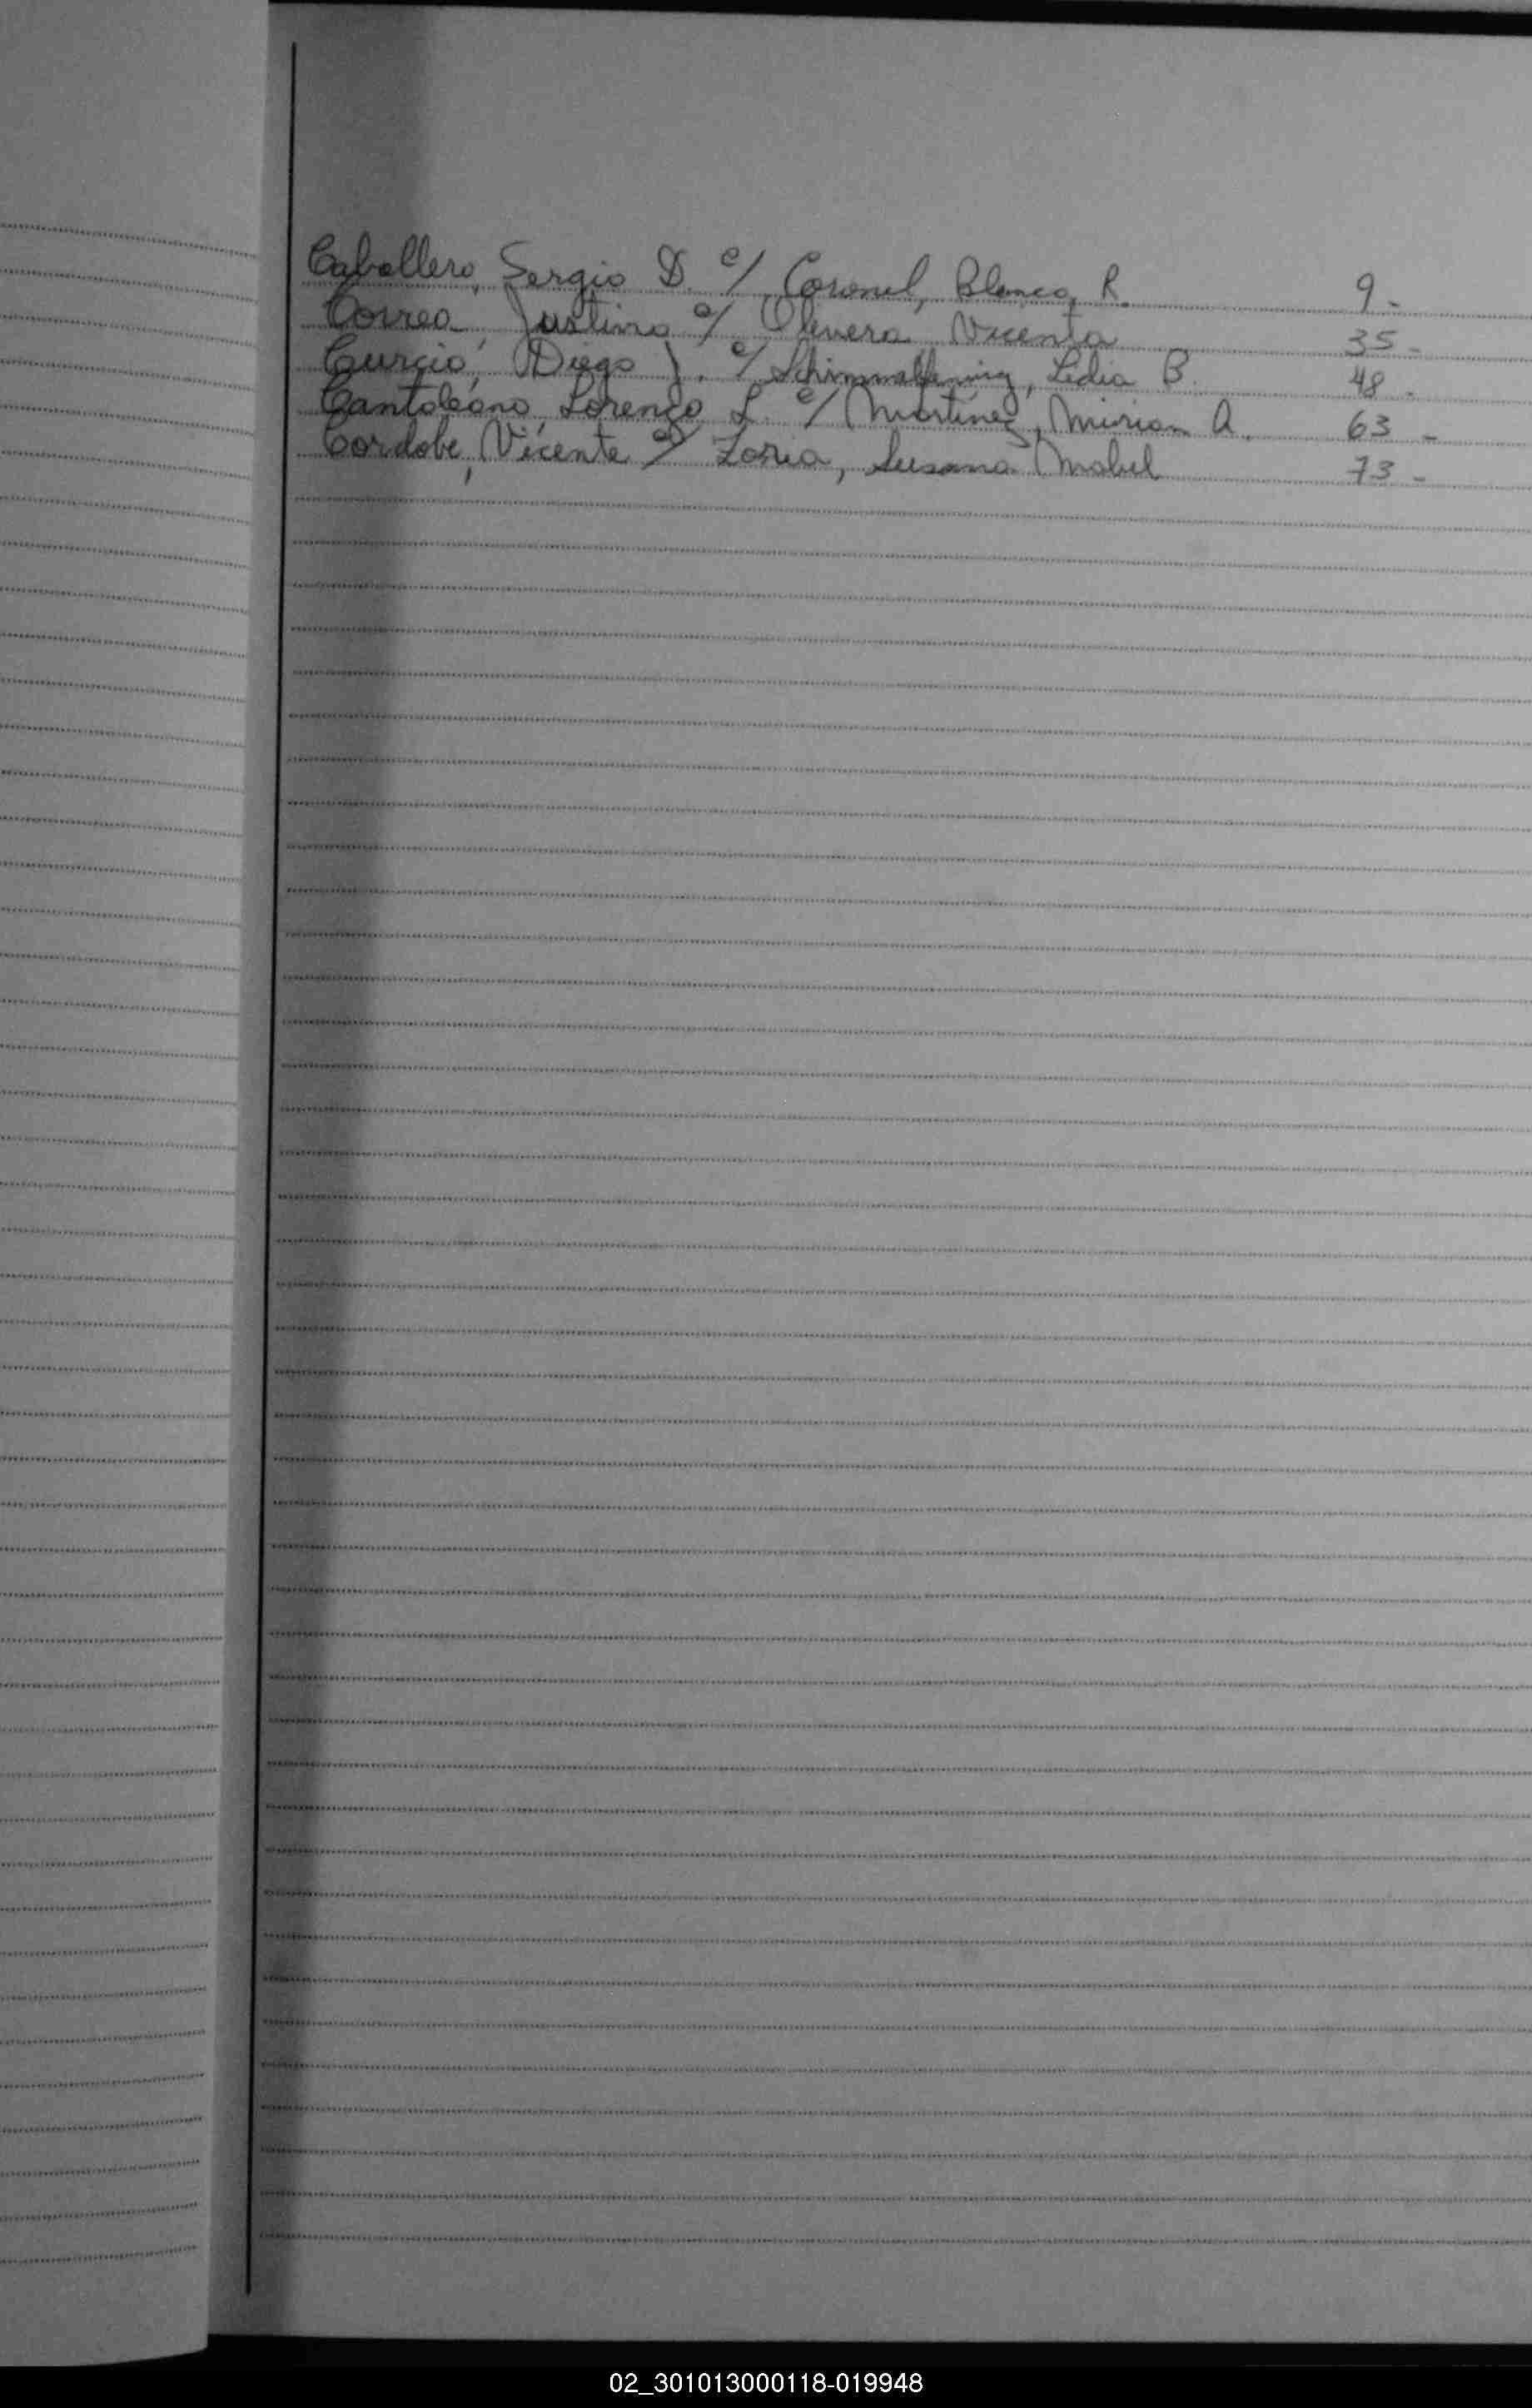 Caballero, Sergio D. c/ Coronel, Blanca, R. 9-
Correa, Justino c/ Olivera Vicenta 35-
Curcio, Diego J. c/ Lidia B. 48-
Cantoleano, Lorenzo L. c/ Martinez, Mirian A. 63-
Cordobe, Vicente c/ Zoria, Susana Mabel 73-
02_301013000118-019948